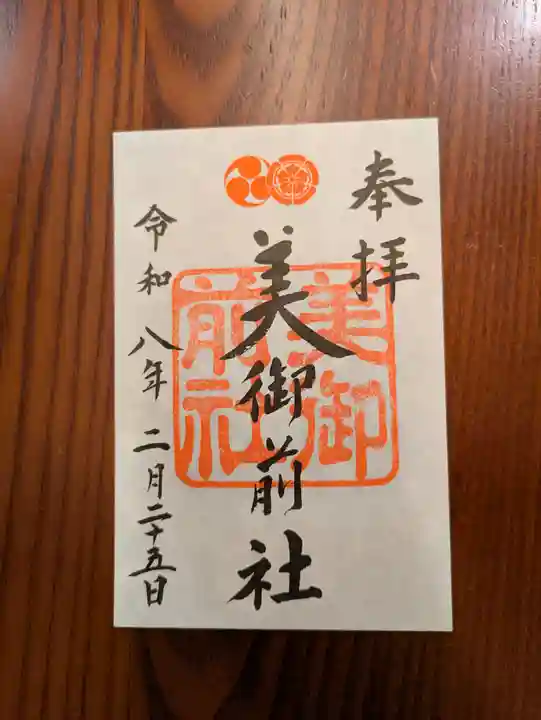 奉拝
美御前社
美御前社
令和八年二月二十五日